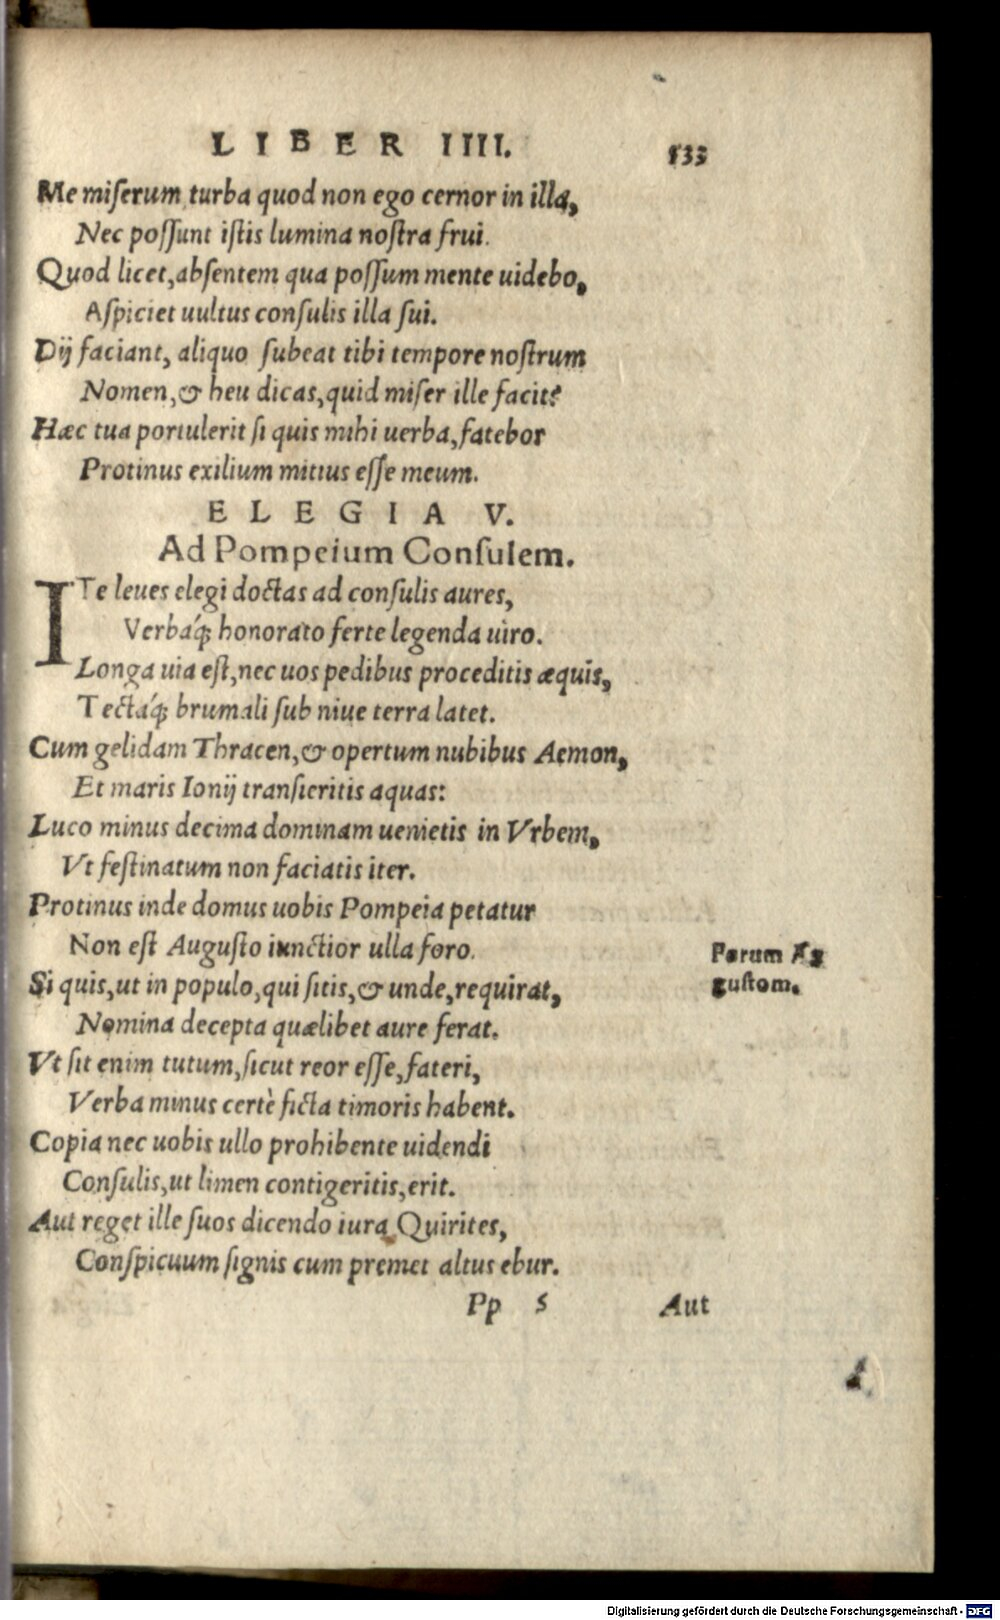 LIBER IIII. 133
Me miserum turba quod non ego cernor in illa,
Nec possunt istis lumina nostra frui.
Quod licet, absentem qua possum mente uidebo,
Aspiciet uultus consulis illa sui.
Dij faciant, aliquo subeat tibi tempore nostrum
Nomen, & heu dicas, quid miser ille facit?
Hæc tua portulerit si quis mihi uerba, fatebor
Protinus exilium mitius esse meum.
ELEGIA V.
Ad Pompeium Consulem.
ITe leues elegi doctas ad consulis aures,
Verbaq́; honorato ferte legenda uiro.
Longa uia est, nec uos pedibus proceditis æquis,
Tectaq́; brumali sub niue terra latet.
Cum gelidam Thracen, & opertum nubibus Aemon,
Et maris Ionij transieritis aquas:
Luco minus decima dominam uenietis in Vrbem,
Vt festinatum non faciatis iter.
Protinus inde domus uobis Pompeia petatur
Non est Augusto iunctior ulla foro.
Si quis, ut in populo, qui sitis, & unde, requirat,
Nomina decepta quælibet aure ferat.
Vt sit enim tutum, sicut reor esse, fateri,
Verba minus certè ficta timoris habent.
Copia nec uobis ullo prohibente uidendi
Consulis, ut limen contigeritis, erit.
Aut reget ille suos dicendo iura Quirites,
Conspicuum signis cum premet altus ebur.
Pp 5 Aut
gustom.
Digitalisierung gefördert durch die Deutsche Forschungsgemeinschaft - DFG